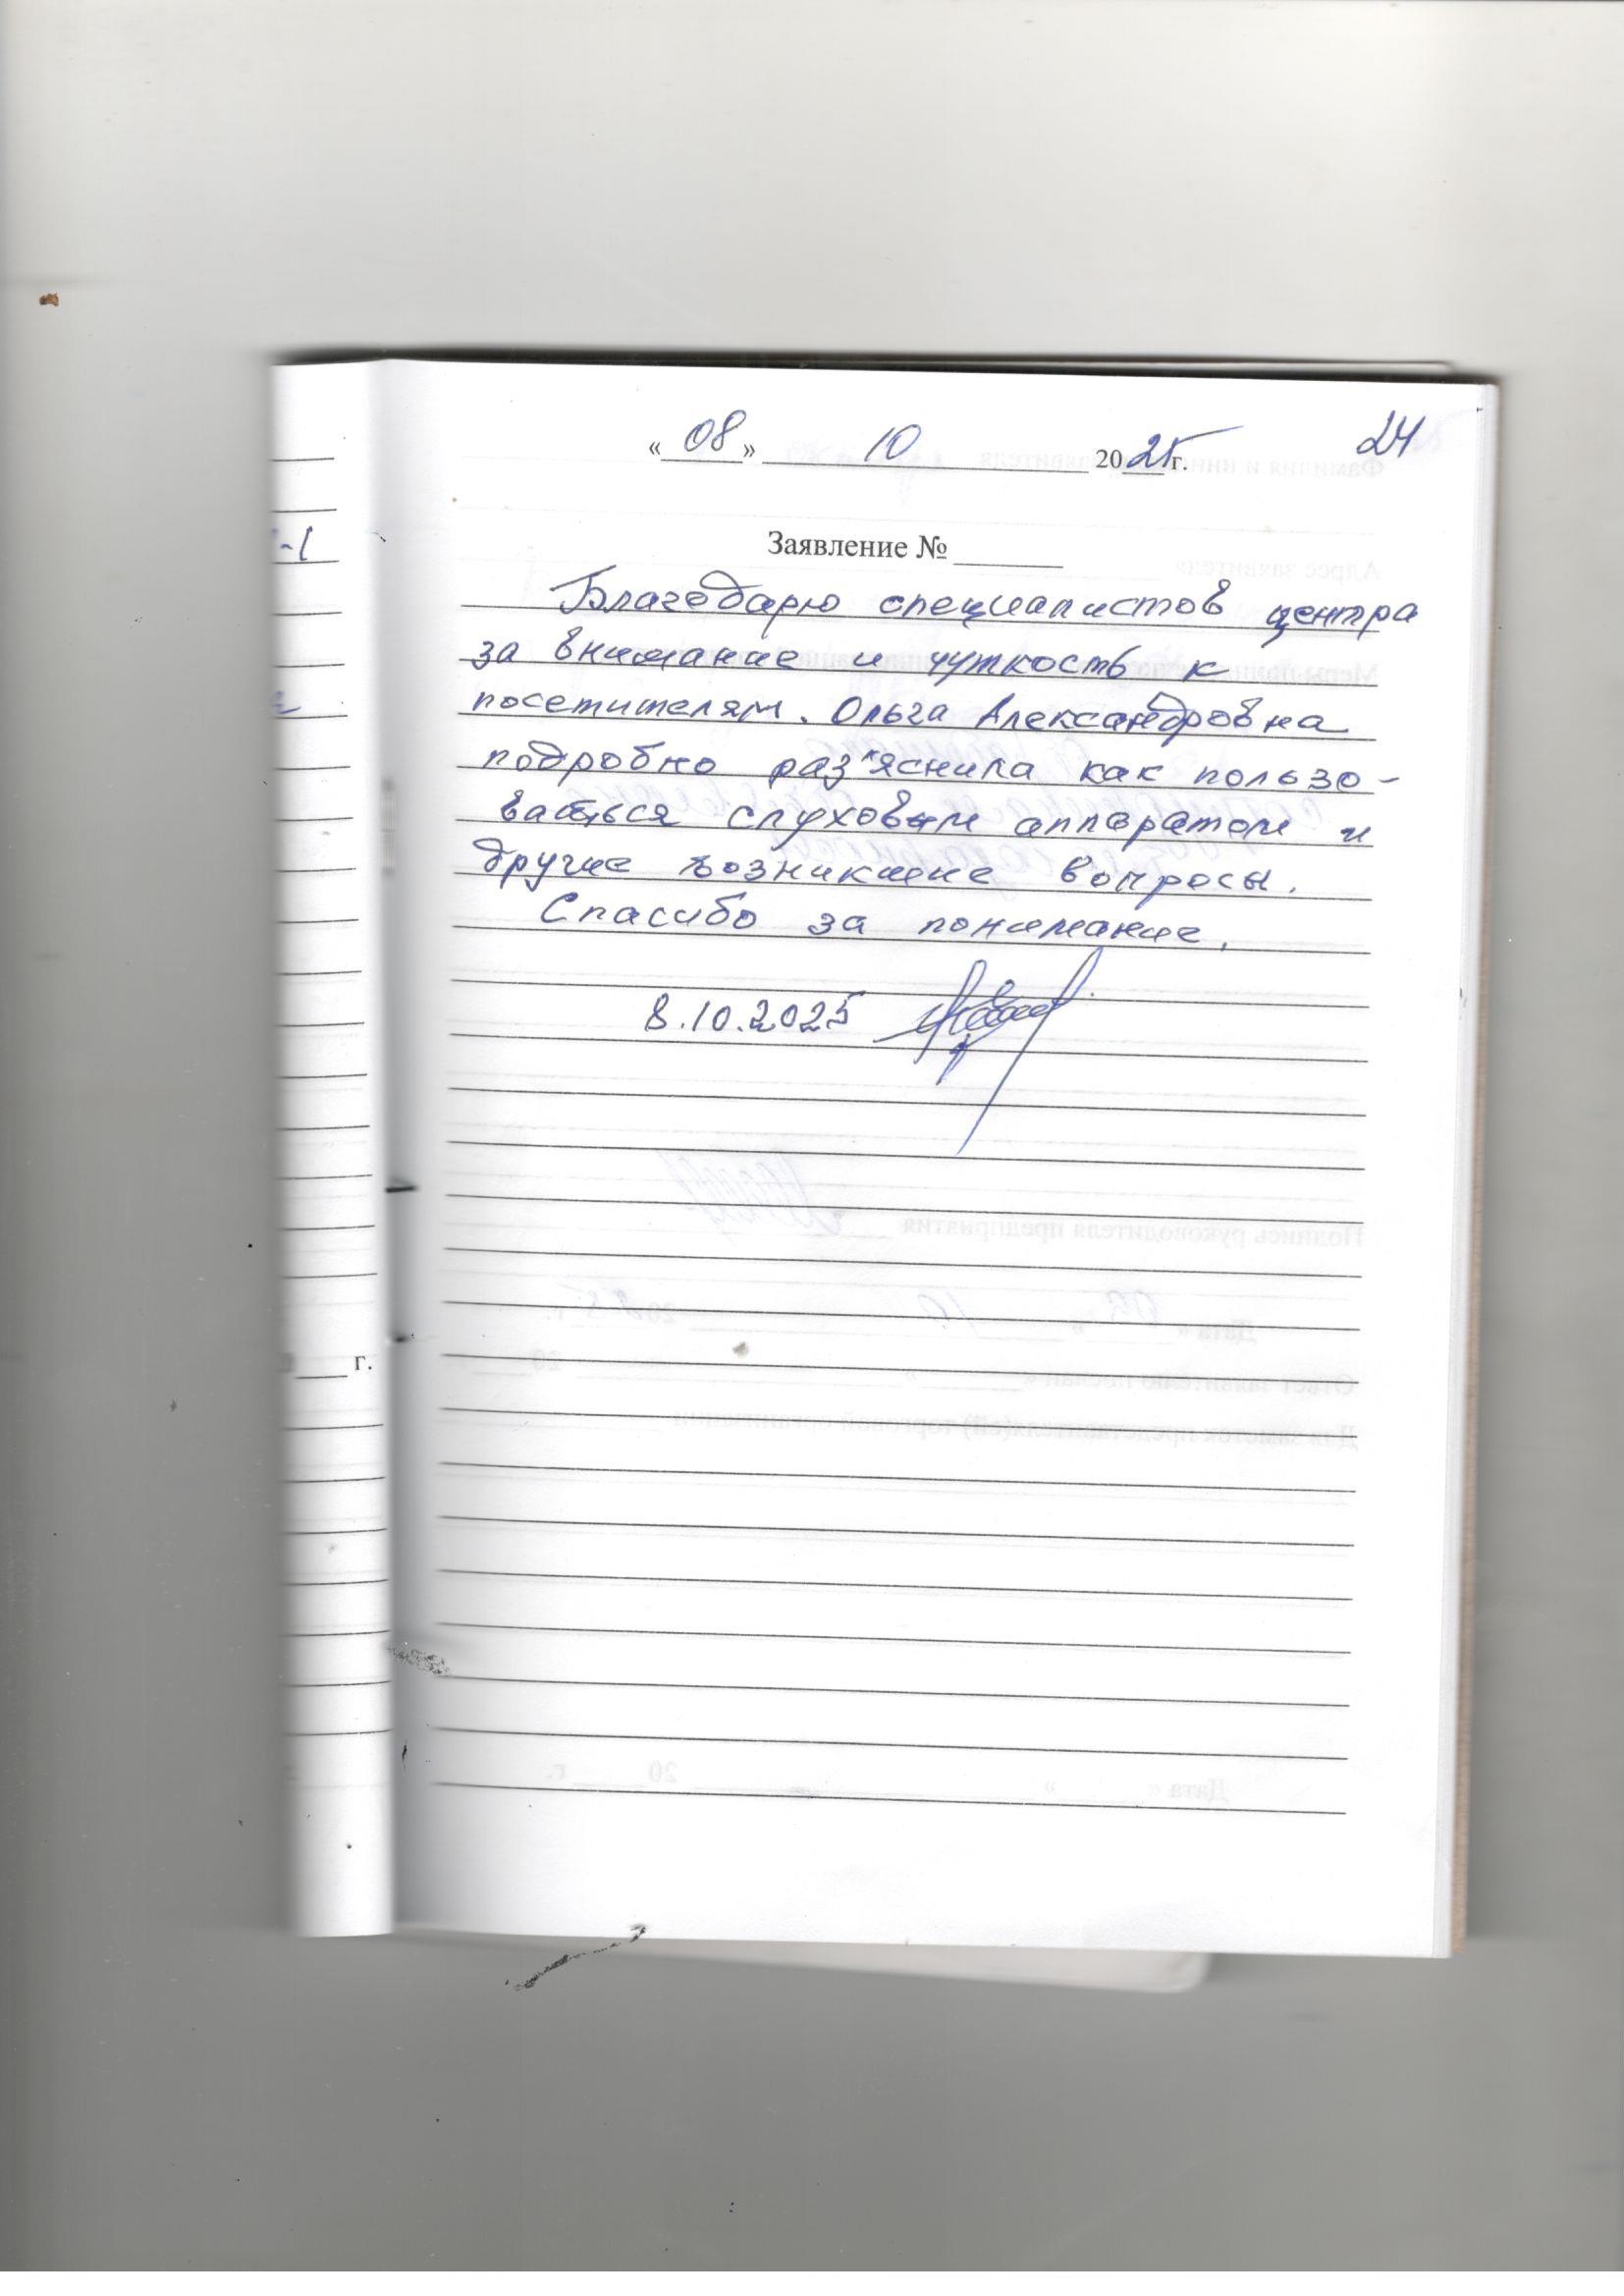 24
«08» 10 2025 г.
Заявление №
Благодарю специалистов центра
за внимание и чуткость к
посетителям. Ольга Александровна
подробно раз"яснила как пользо-
ваться слуховым аппаратом и
другие возникшие вопросы.
Спасибо за понимание.
8.10.2025
г.